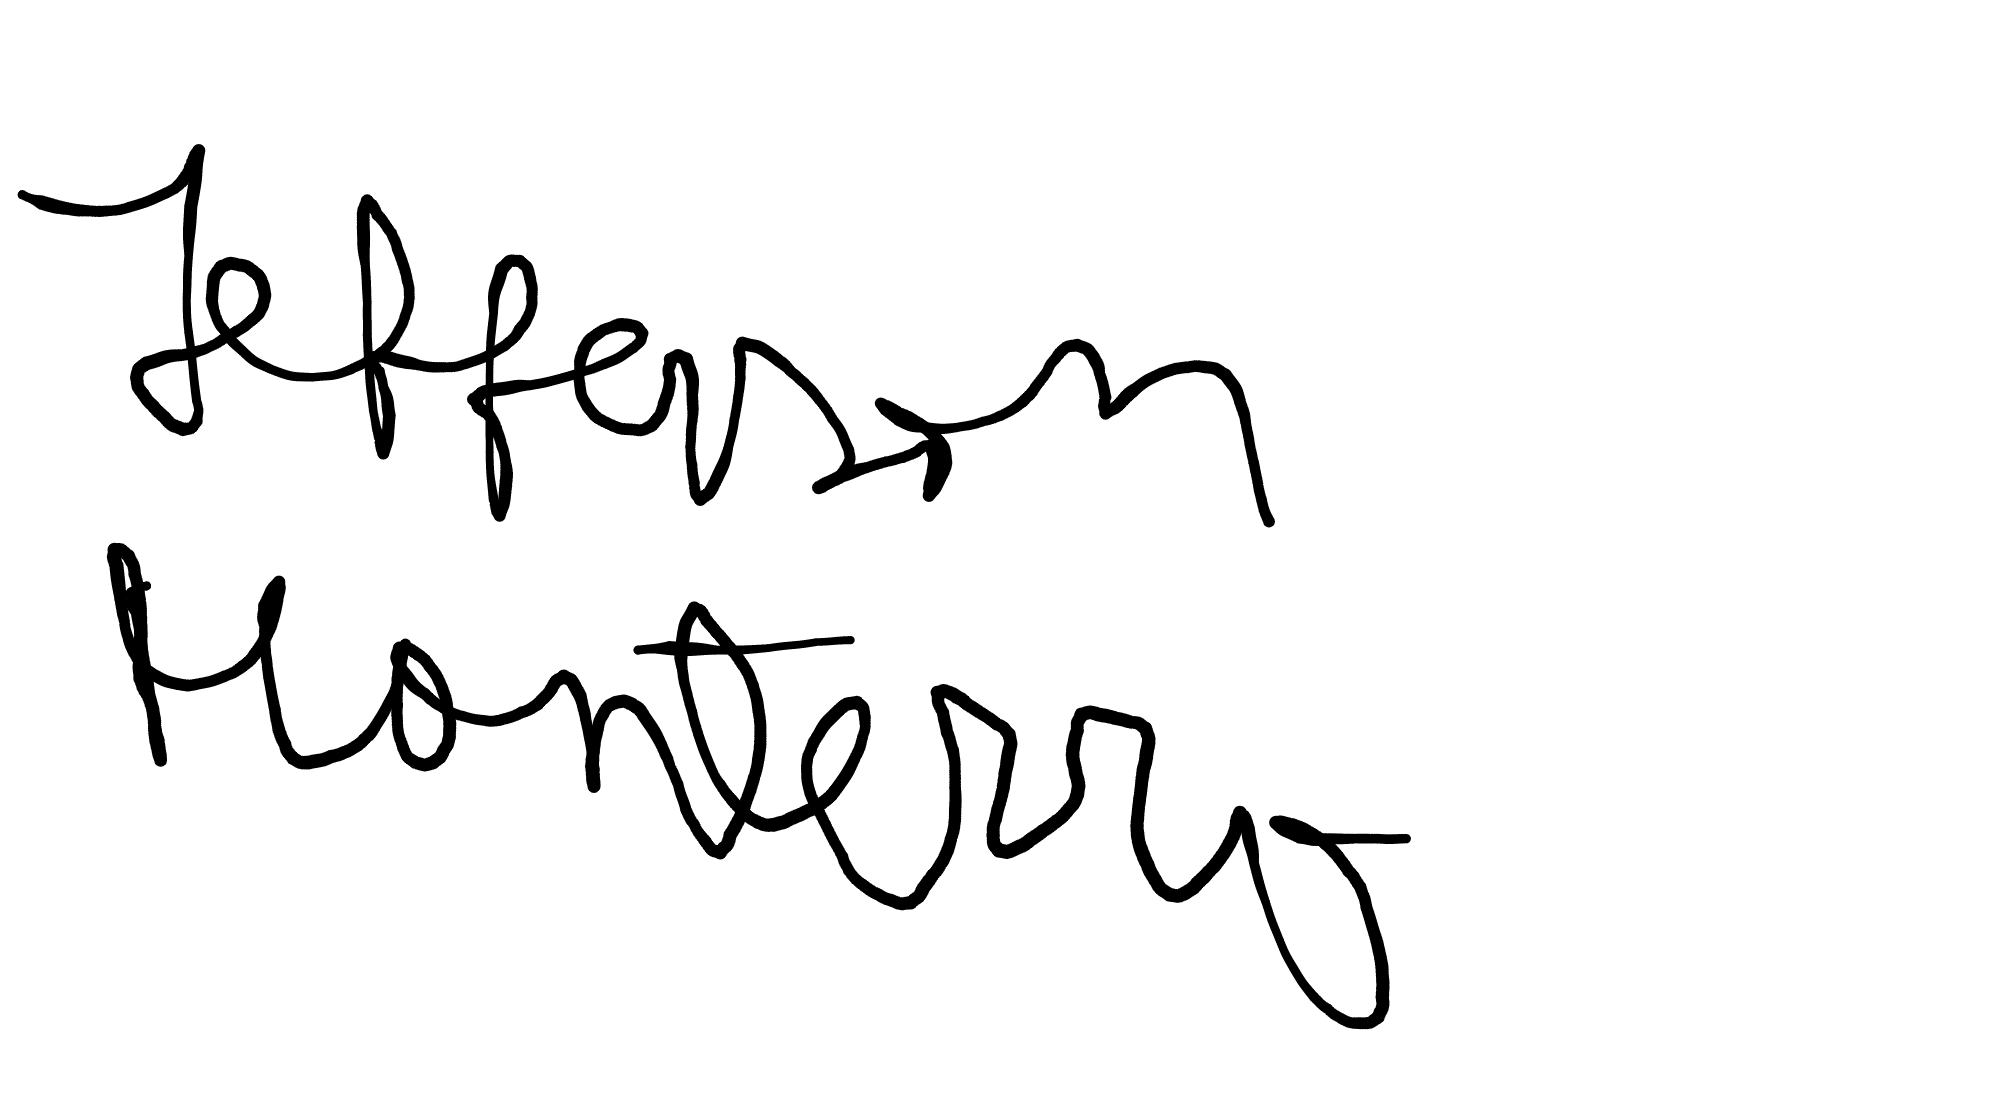 Jefferson
Monterro